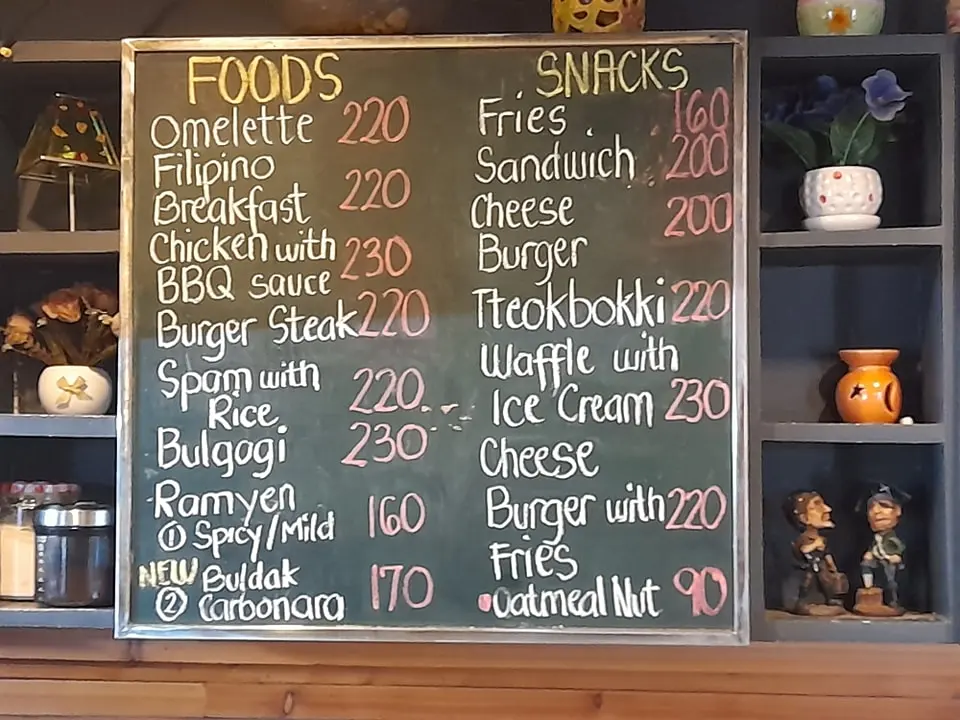 FOODS
Omelette 220
Filipino
Breakfast 220
Chicken with
BBQ sauce 230
Burger Steak 220
Spam with
Rice 220
Bulgogi 230
Ramyen
① Spicy/Mild 160
NEW Buldak
② Carbonara 170
SNACKS
Fries 160
Sandwich 200
Cheese 200
Burger
Tteokbokki 220
Waffle with
Ice Cream 230
Cheese
Burger with 220
Fries
Oatmeal Nut 90